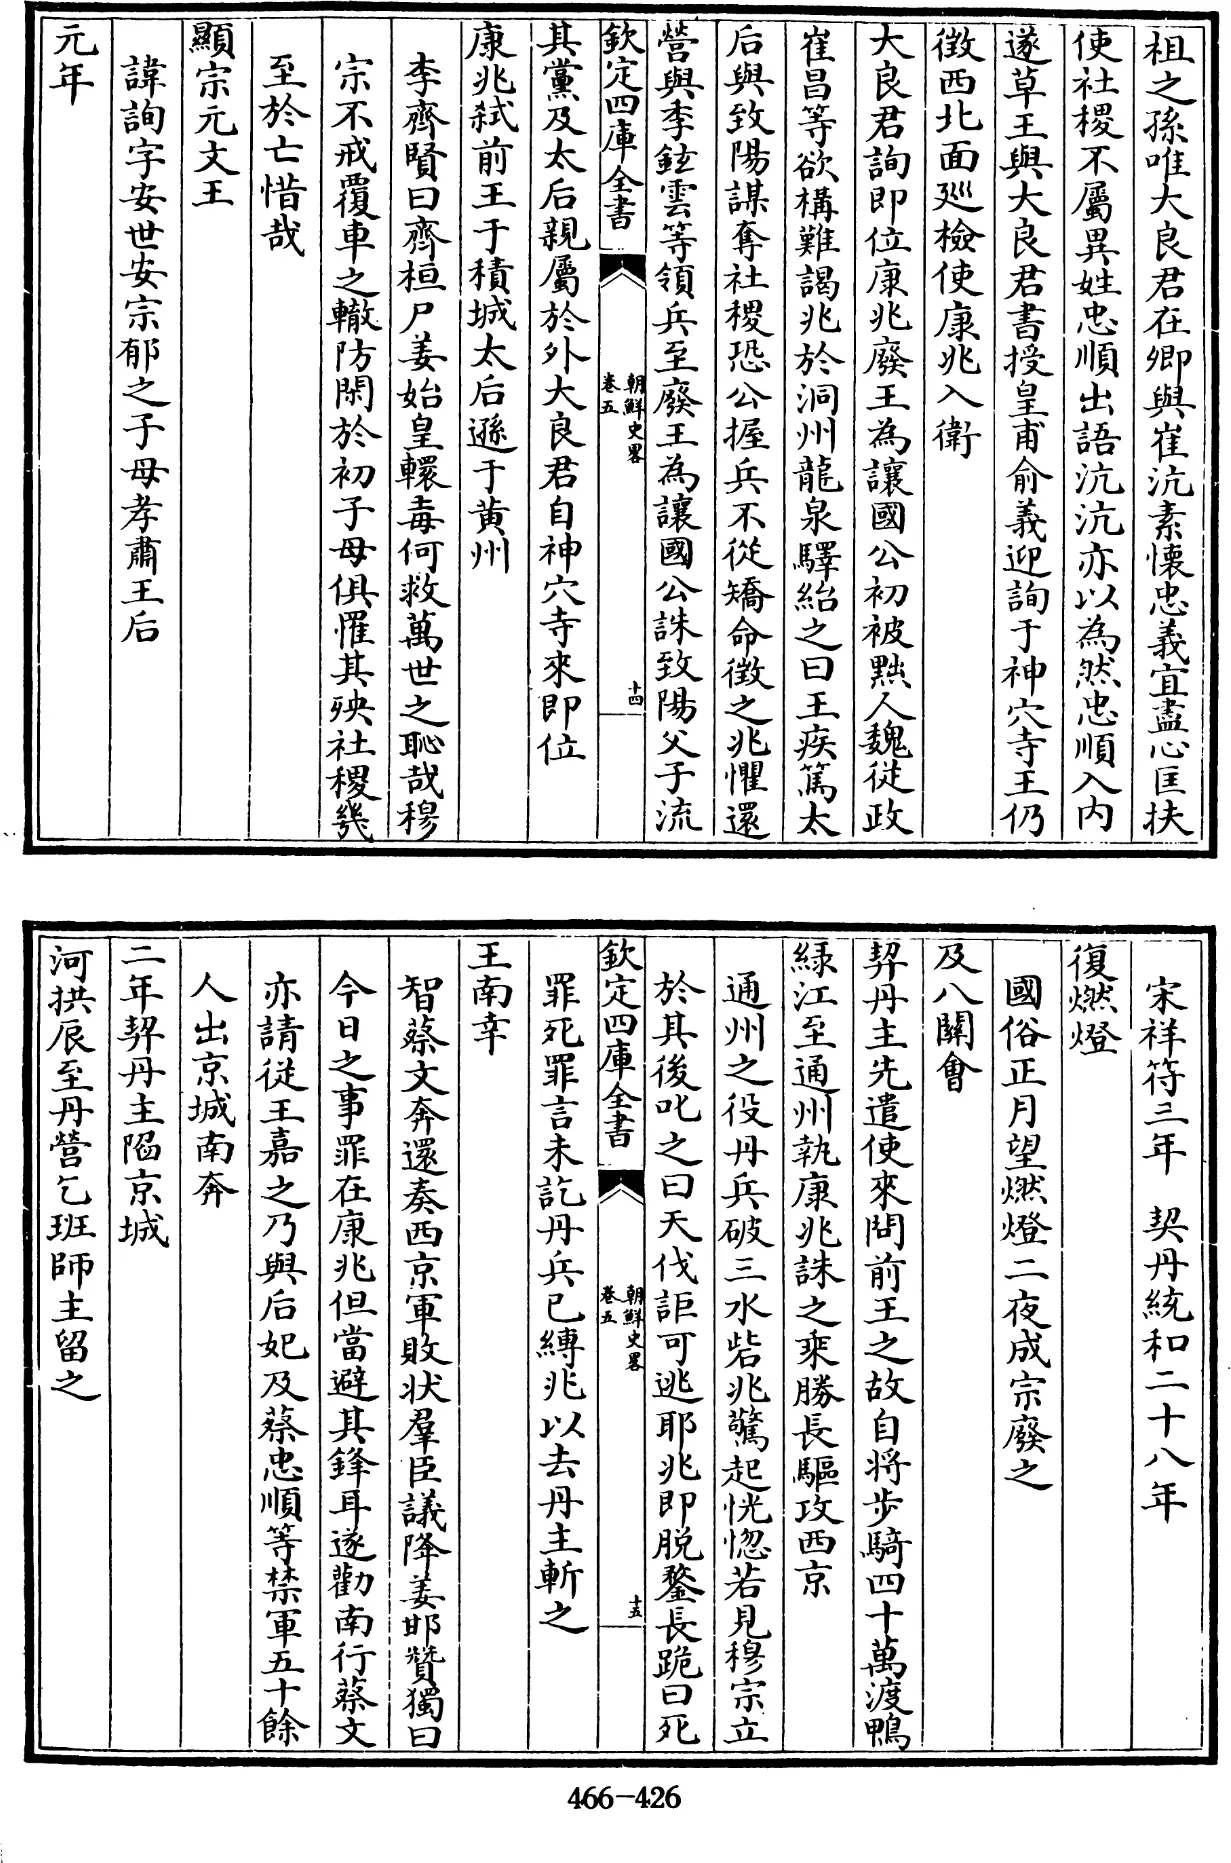 祖之孫唯大良君在卿與崔沆素懷忠義宜盡心匡扶
使社稷不屬異姓忠順出語沆沆亦以為然忠順入内
遂草王與大良君書授皇甫俞義迎詢于神穴寺王仍
徴西北面廵檢使康兆入衛
大良君詢即位康兆廢王為讓國公初被㸃人魏從政
崔昌等欲構難謁兆於洞州龍泉驛紿之曰王疾篤太
后與致陽謀奪社稷恐公握兵不從矯命徴之兆懼還
營與李鉉雲等領兵至廢王為讓國公誅致陽父子流
欽定四庫全書
朝鮮史畧
卷五
十四
其黨及太后親屬於外大良君自神穴寺來即位
康兆弑前王于積城太后遜于黄州
李齊賢曰齊桓尸姜始皇轘毒何救萬世之恥哉穆
宗不戒覆車之轍防閑於初子母俱罹其殃社稷㡬
至於亡惜哉
顯宗元文王
諱詢字安世安宗郁之子母孝肅王后
元年
宋祥符三年 契丹統和二十八年
復燃燈
國俗正月望燃燈二夜成宗廢之
及八關會
契丹主先遣使來問前王之故自將步騎四十萬渡鴨
緑江至通州執康兆誅之乘勝長驅攻西京
通州之役丹兵破三水砦兆驚起恍惚若見穆宗立
於其後叱之曰天伐詎可逃耶兆即脱鍪長跪曰死
欽定四庫全書
朝鮮史畧
卷五
十五
罪死罪言未訖丹兵已縛兆以去丹主斬之
王南幸
智蔡文奔還奏西京軍敗狀羣臣議降姜邯贊獨曰
今日之事罪在康兆但當避其鋒耳遂勸南行蔡文
亦請從王嘉之乃與后妃及蔡忠順等禁軍五十餘
人出京城南奔
二年契丹主䧟京城
河拱辰至丹營乞班師主留之
466-426